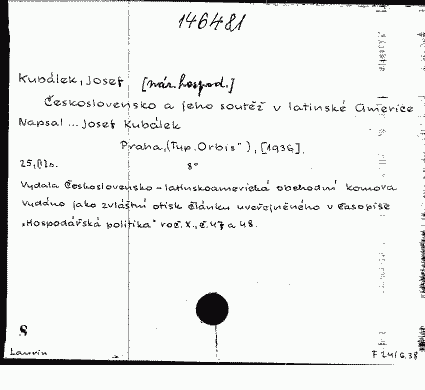 146481
Kubálek, Josef [nár. hospod.]
Československo a jeho soutěž v latinské Americe
Napsal ... Josef Kubálek
Praha, (Typ. „Orbis"), [1936].
25, (1) s. 8°
Vydala Československo-latinskoamerická obchodní komora
Vydáno jako zvláštní otisk článku uveřejněného v časopise
„Hospodářská politika" roč. X., č. 47 a 48.
8
Laurin F 24/6.38